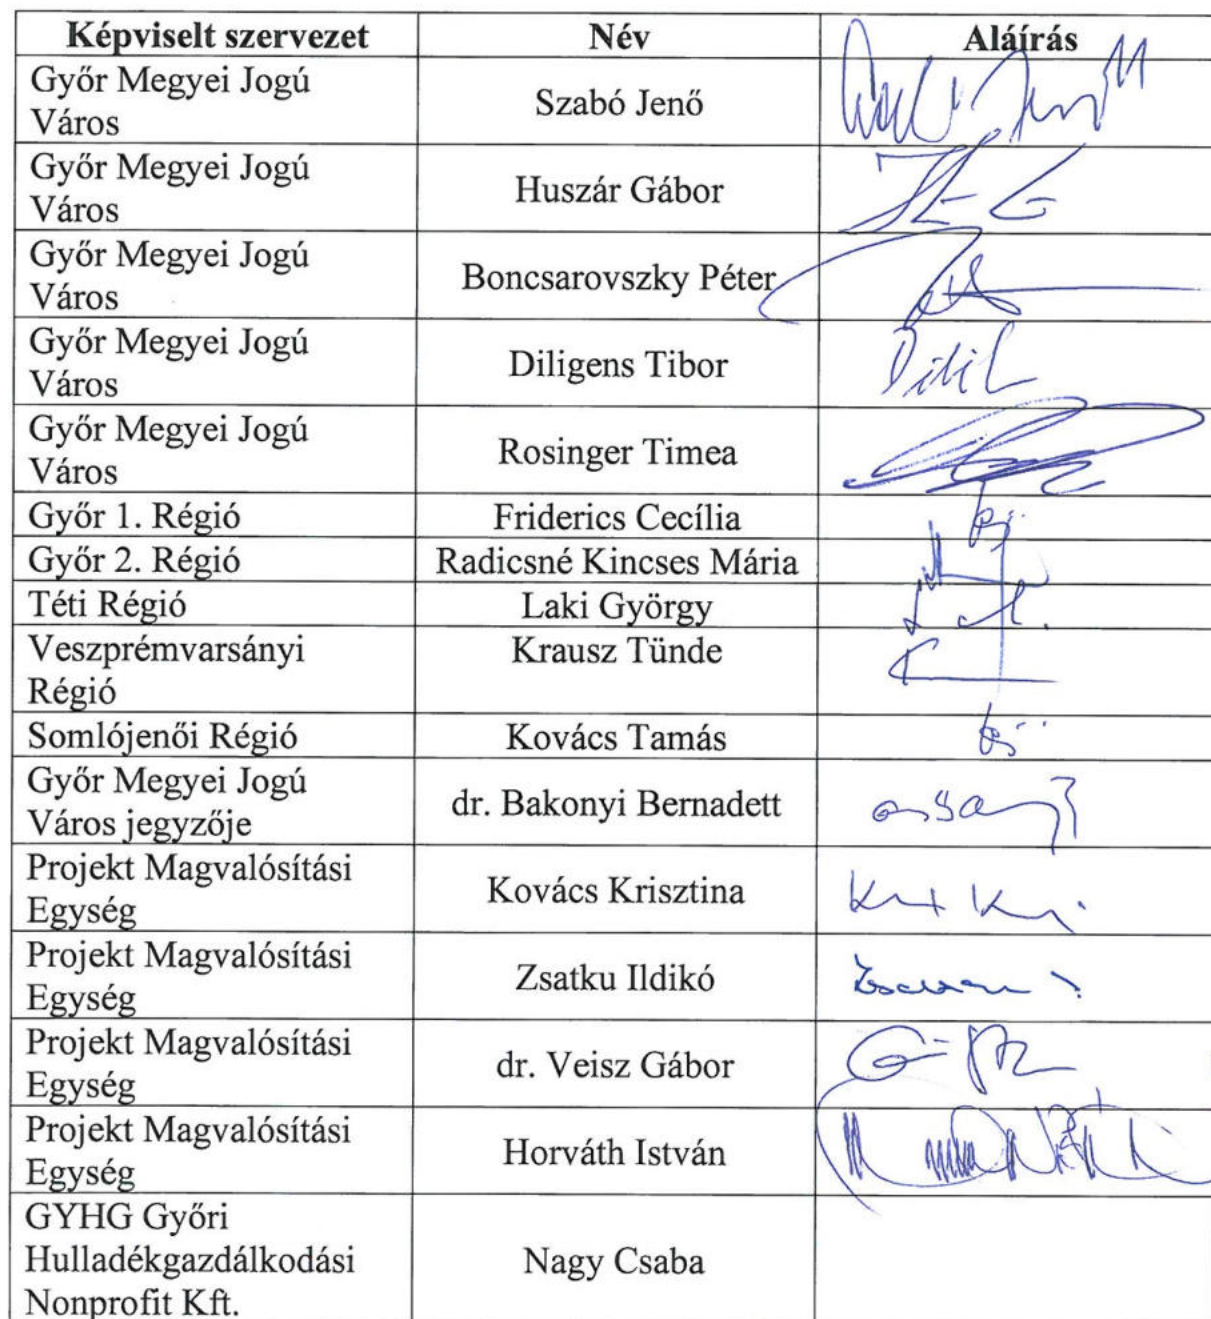 Képviselt szervezet Név Aláírás
Győr Megyei Jogú
Város
Szabó Jenő
Győr Megyei Jogú
Város
Huszár Gábor
Győr Megyei Jogú
Város
Boncsarovszky Péter
Győr Megyei Jogú
Város
Diligens Tibor
Győr Megyei Jogú
Város
Rosinger Timea
Győr 1. Régió Friderics Cecília
Győr 2. Régió Radicsné Kincses Mária
Téti Régió Laki György
Veszprémvarsányi
Régió
Krausz Tünde
Somlójenői Régió Kovács Tamás
Győr Megyei Jogú
Város jegyzője
dr. Bakonyi Bernadett
Projekt Magvalósítási
Egység
Kovács Krisztina
Projekt Magvalósítási
Egység
Zsatku Ildikó
Projekt Magvalósítási
Egység
dr. Veisz Gábor
Projekt Magvalósítási
Egység
Horváth István
GYHG Győri
Hulladékgazdálkodási
Nonprofit Kft.
Nagy Csaba